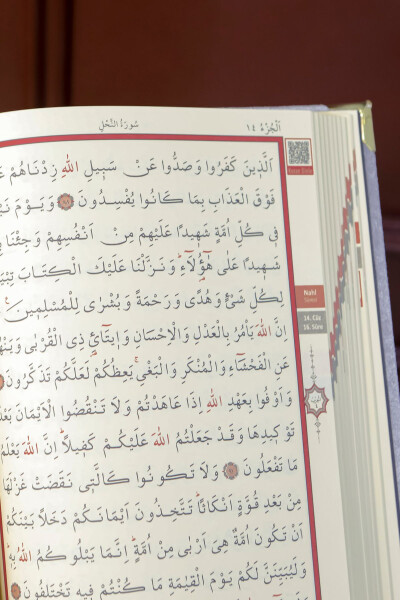 اَلْجُزْءُ ١٤
سُورَةُ النَّحْلِ
اَلَّذِينَ كَفَرُوا وَصَدُّوا عَنْ سَبِيلِ اللّٰهِ زِدْنَاهُمْ
فَوْقَ الْعَذَابِ بِمَا كَانُوا يُفْسِدُونَ ﴿٨٨﴾ وَيَوْمَ
فِى كُلِّ اُمَّةٍ شَهِيدًا عَلَيْهِمْ مِنْ اَنْفُسِهِمْ وَجِئْنَا
شَهِيدًا عَلٰى هٰٓؤُ۬لَٓاءِۜ وَنَزَّلْنَا عَلَيْكَ الْكِتَابَ
لِكُلِّ شَىْءٍ وَهُدًى وَرَحْمَةً وَبُشْرٰى لِلْمُسْلِمِينَ
اِنَّ اللّٰهَ يَأْمُرُ بِالْعَدْلِ وَالْاِحْسَانِ وَاِيتَٓائِ ذِى الْقُرْبٰى
عَنِ الْفَحْشَٓاءِ وَالْمُنْكَرِ وَالْبَغْىِۚ يَعِظُكُمْ لَعَلَّكُمْ تَذَكَّرُونَ
وَاَوْفُوا بِعَهْدِ اللّٰهِ اِذَا عَاهَدْتُمْ وَلَا تَنْقُضُوا الْاَيْمَانَ
تَوْكِيدِهَا وَقَدْ جَعَلْتُمُ اللّٰهَ عَلَيْكُمْ كَفِيلًاۜ اِنَّ اللّٰهَ
مَا تَفْعَلُونَ ﴿٩١﴾ وَلَا تَكُونُوا كَالَّتِى نَقَضَتْ غَزْلَهَا
مِنْ بَعْدِ قُوَّةٍ اَنْكَاثًاۜ تَتَّخِذُونَ اَيْمَانَكُمْ دَخَلًا بَيْنَكُمْ
اَنْ تَكُونَ اُمَّةٌ هِىَ اَرْبٰى مِنْ اُمَّةٍۜ اِنَّمَا يَبْلُوكُمُ اللّٰهُ بِهِ
وَلَيُبَيِّنَنَّ لَكُمْ يَوْمَ الْقِيٰمَةِ مَا كُنْتُمْ فِيهِ تَخْتَلِفُونَ
Nahl
Sûresi
14. Cüz
16. Sûre